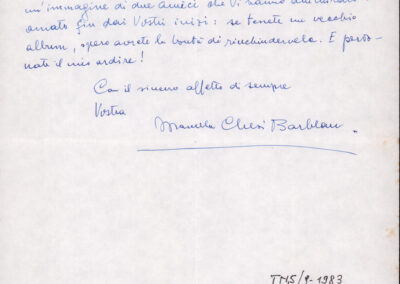 un'immagine di due amici che Vi hanno
amato fin dai Vostri inizi : se tenete un vecchio
album, spero avrete la bontà di rinchiudervela. E perdo-
nate il mio ardire !
Con il sincero affetto di sempre
Vostra
Manuela Chesi Barblan
TMS/9-1983